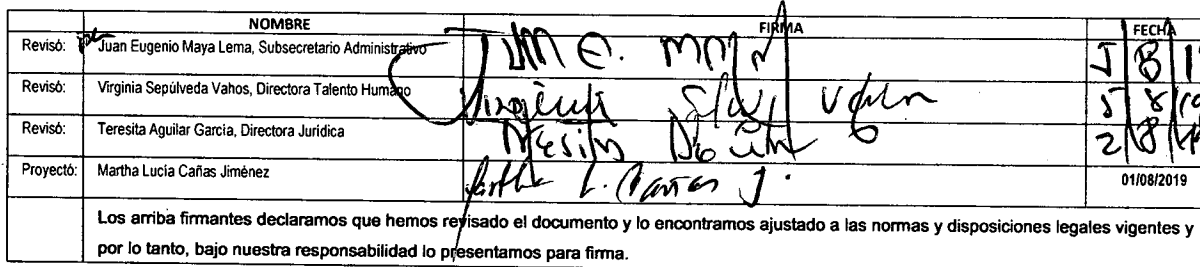 NOMBRE FIRMA FECHA
Revisó: Juan Eugenio Maya Lema, Subsecretario Administrativo
Revisó: Virginia Sepúlveda Vahos, Directora Talento Humano 5 8
Revisó: Teresita Aguilar García, Directora Jurídica 2 8
Proyectó: Martha Lucía Cañas Jiménez Martha L. Cañas J. 01/08/2019
Los arriba firmantes declaramos que hemos revisado el documento y lo encontramos ajustado a las normas y disposiciones legales vigentes y
por lo tanto, bajo nuestra responsabilidad lo presentamos para firma.